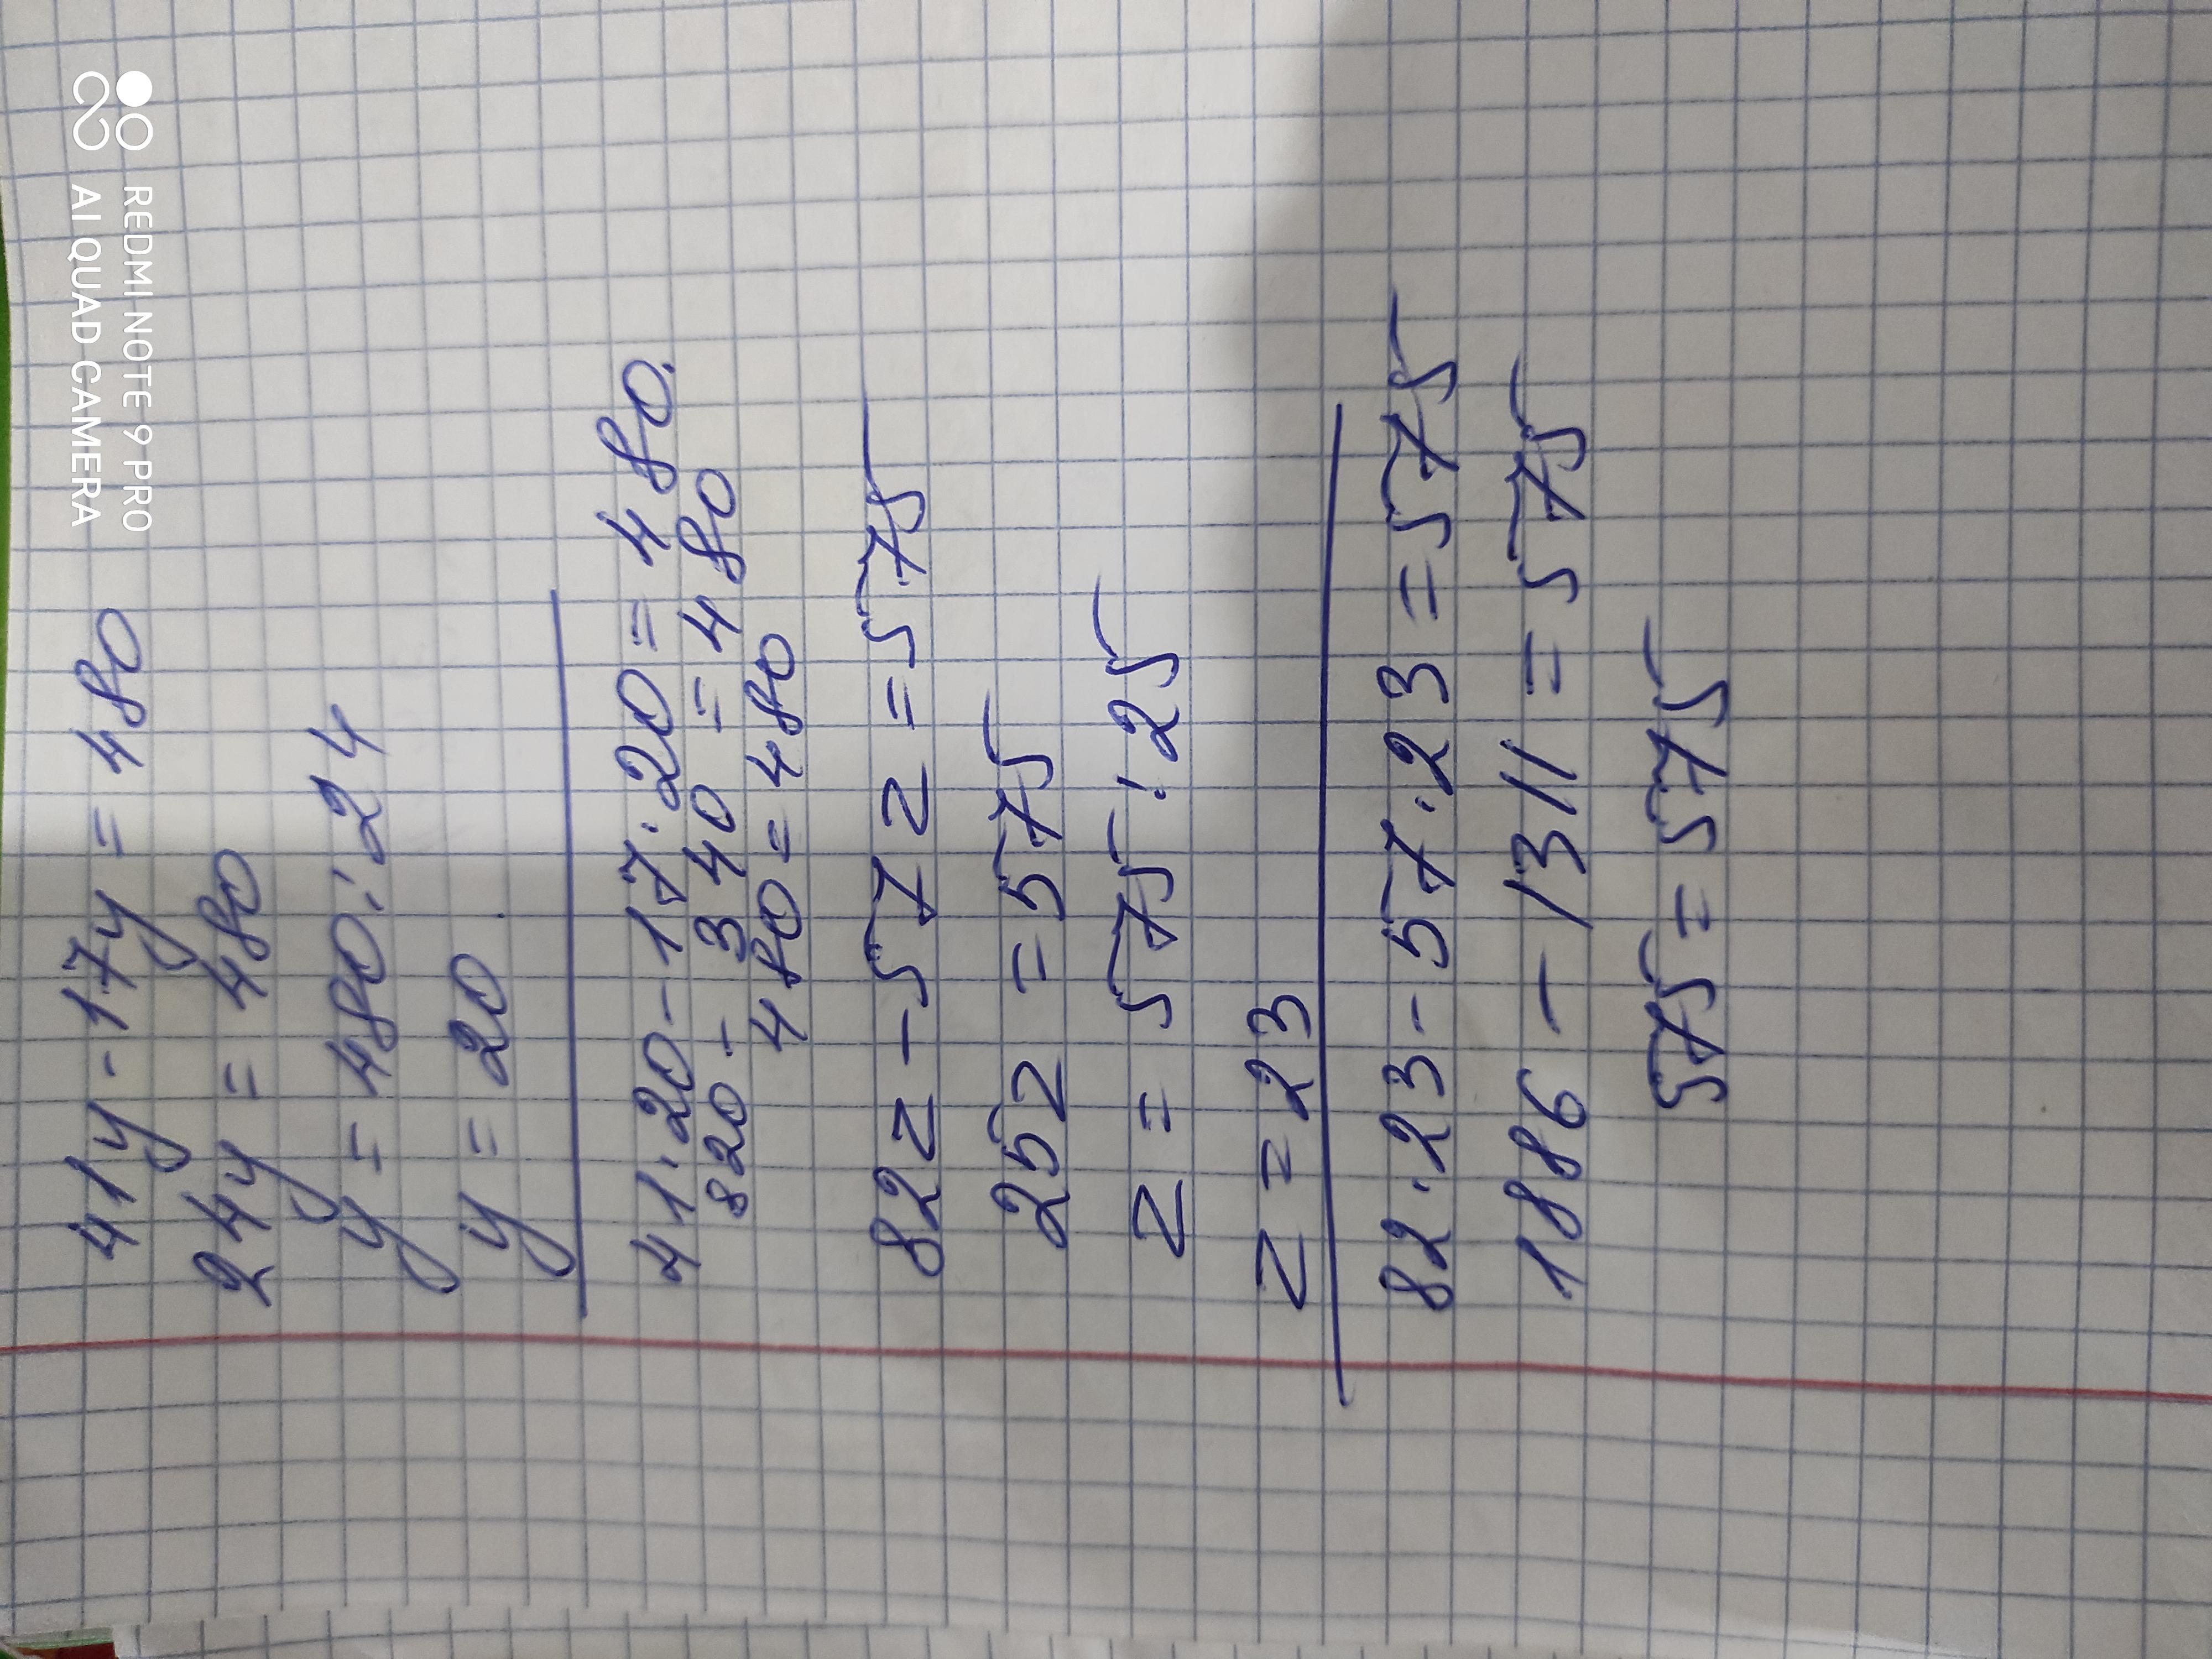 41y - 17y = 480
24y = 480
y = 480 : 24
y = 20
41 · 20 - 17 · 20 = 480.
820 - 340 = 480
480 = 480
82z - 57z = 575
25z = 575
z = 575 : 25
z = 23
82 · 23 - 57 · 23 = 575
1886 - 1311 = 575
575 = 575
REDMI NOTE 9 PRO
AI QUAD CAMERA